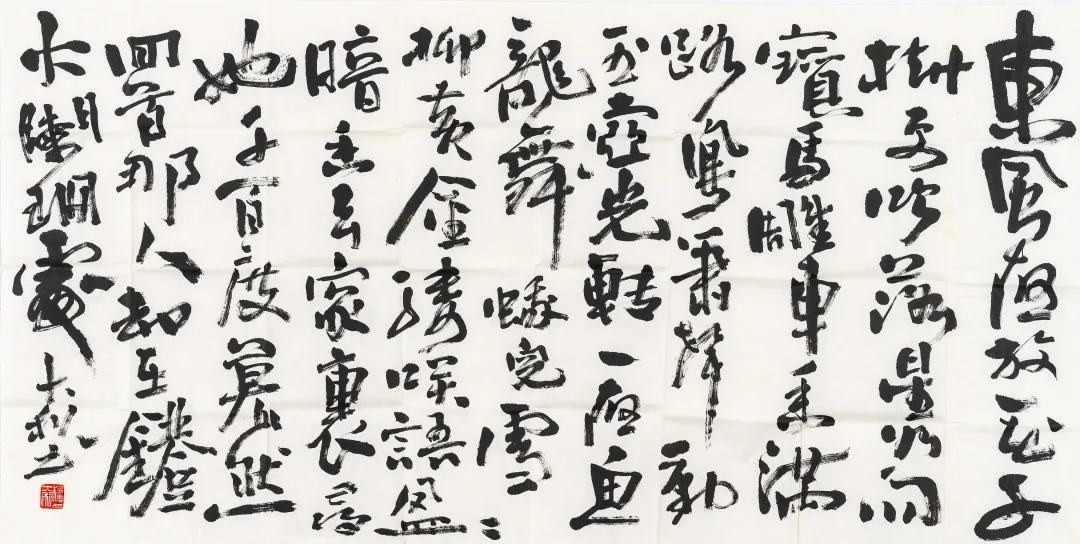 東風夜放花千
樹更吹落星如雨
寶馬雕車香滿
路鳳簫聲動
玉壺光轉一夜魚
龍舞蛾兒雪
柳黃金縷笑語盈
暗香去衆裏尋
她千百度驀然
回首那人却在鐙
火闌珊處